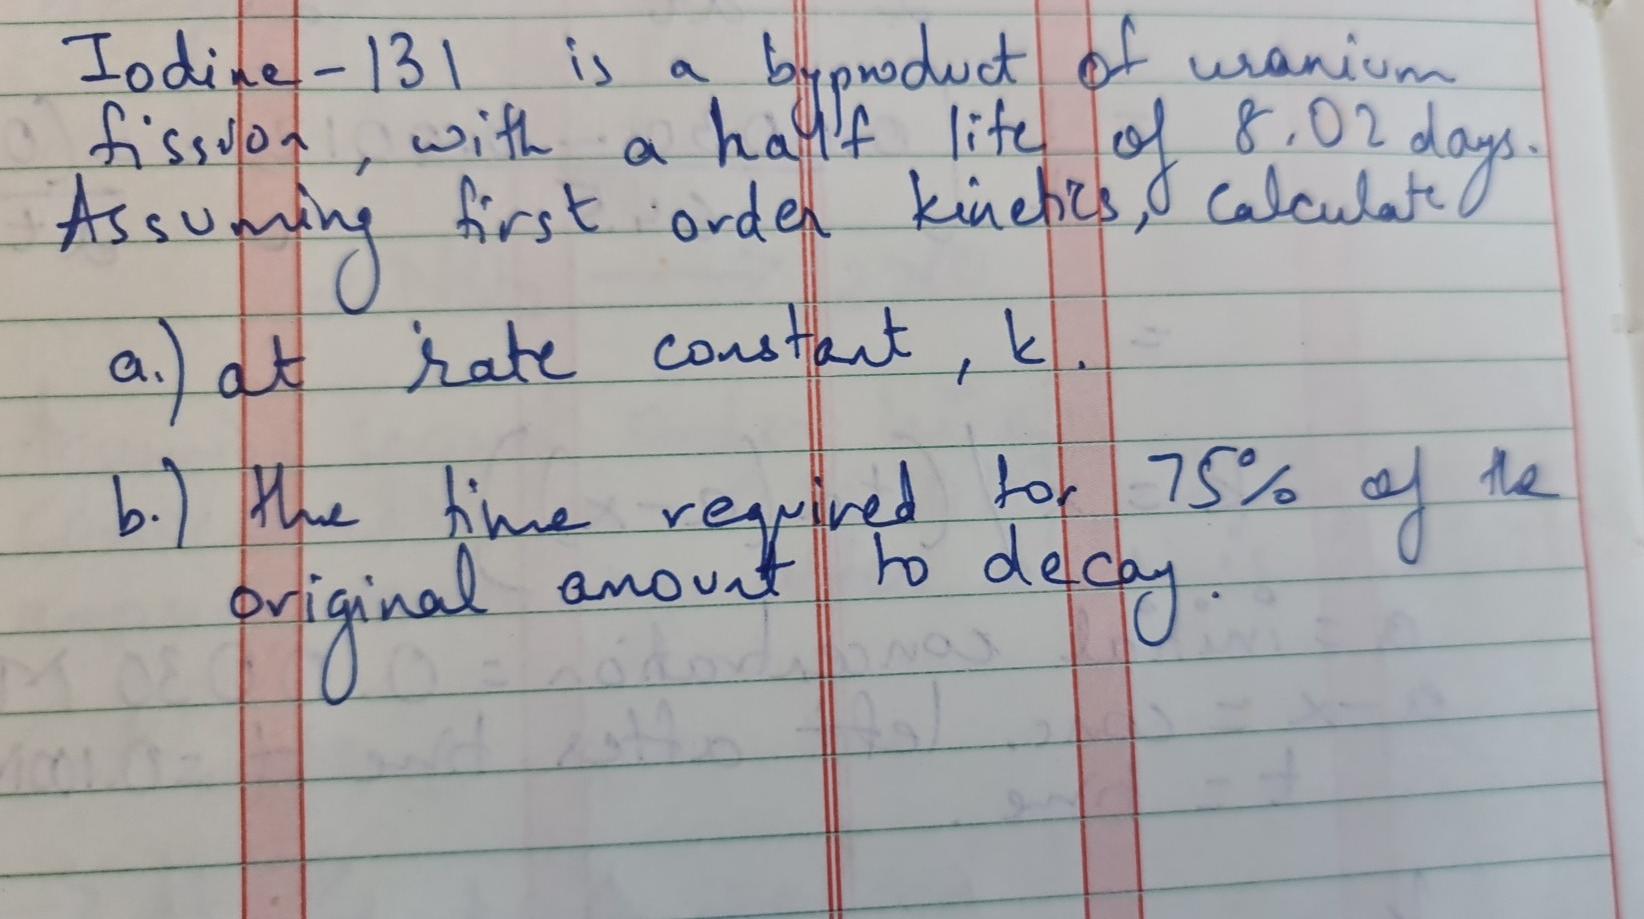 Iodine-131 is a byproduct of uranium
fission, with a half life of 8.02 days.
Assuming first order kinetics, calculate
a.) at rate constant, k.
b.) the time required for 75% of the
original amount to decay.
a = initial concentration = 0.
a-x = conc. left after time t =
t = time